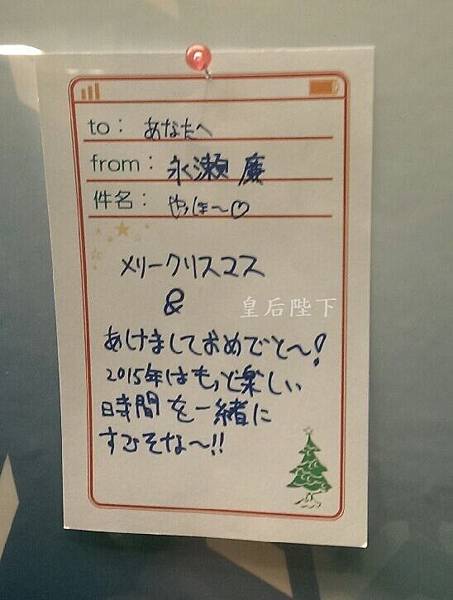 to： あなたへ
from： 永瀬 廉
件名： やっほ〜♡
メリークリスマス
&
皇后陛下
あけましておめでと〜！
2015年はもっと楽しい
時間を一緒に
すごそな〜!!